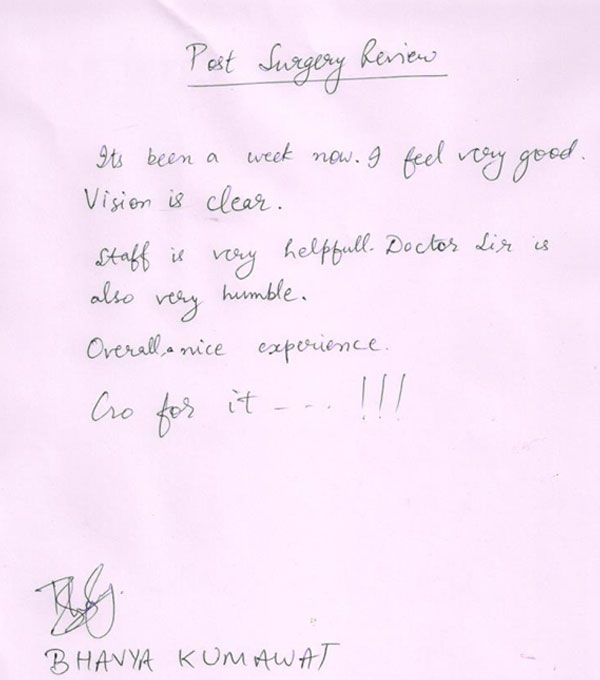 Post Surgery Review
Its been a week now. I feel very good.
Vision is clear.
Staff is very helpfull. Doctor Sir is
also very humble.
Overall a nice experience.
Go for it ---- !!!
BHAVYA KUMAWAT